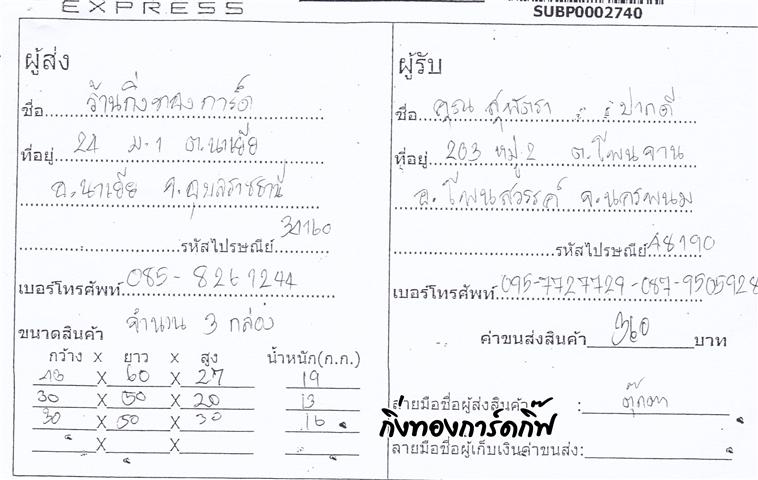 EXPRESS
SUBP0002740
ผู้ส่ง
ชื่อ ร้านกิ่งทองการ์ด
ที่อยู่ 24 ม.1 ต.นาเยีย
อ.นาเยีย จ.อุบลราชธานี
รหัสไปรษณีย์ 34160
เบอร์โทรศัพท์ 085-8261244
ขนาดสินค้า จำนวน 3 กล่อง
กว้าง X ยาว X สูง น้ำหนัก(ก.ก.)
43 X 60 X 27 19
30 X 50 X 20 13
30 X 50 X 30 16
X X
ผู้รับ
ชื่อ คุณ สุพัตรา ปากดี
ที่อยู่ 203 หมู่ 2 ต.โพนจาน
อ.โพนสวรรค์ จ.นครพนม
รหัสไปรษณีย์ 48190
เบอร์โทรศัพท์ 095-7727729-087-9505928
ค่าขนส่งสินค้า 360 บาท
ลายมือชื่อผู้ส่งสินค้า : ตุ๊กตา
กิ่งทองการ์ดกิ๊ฟ
ลายมือชื่อผู้เก็บเงินค่าขนส่ง: